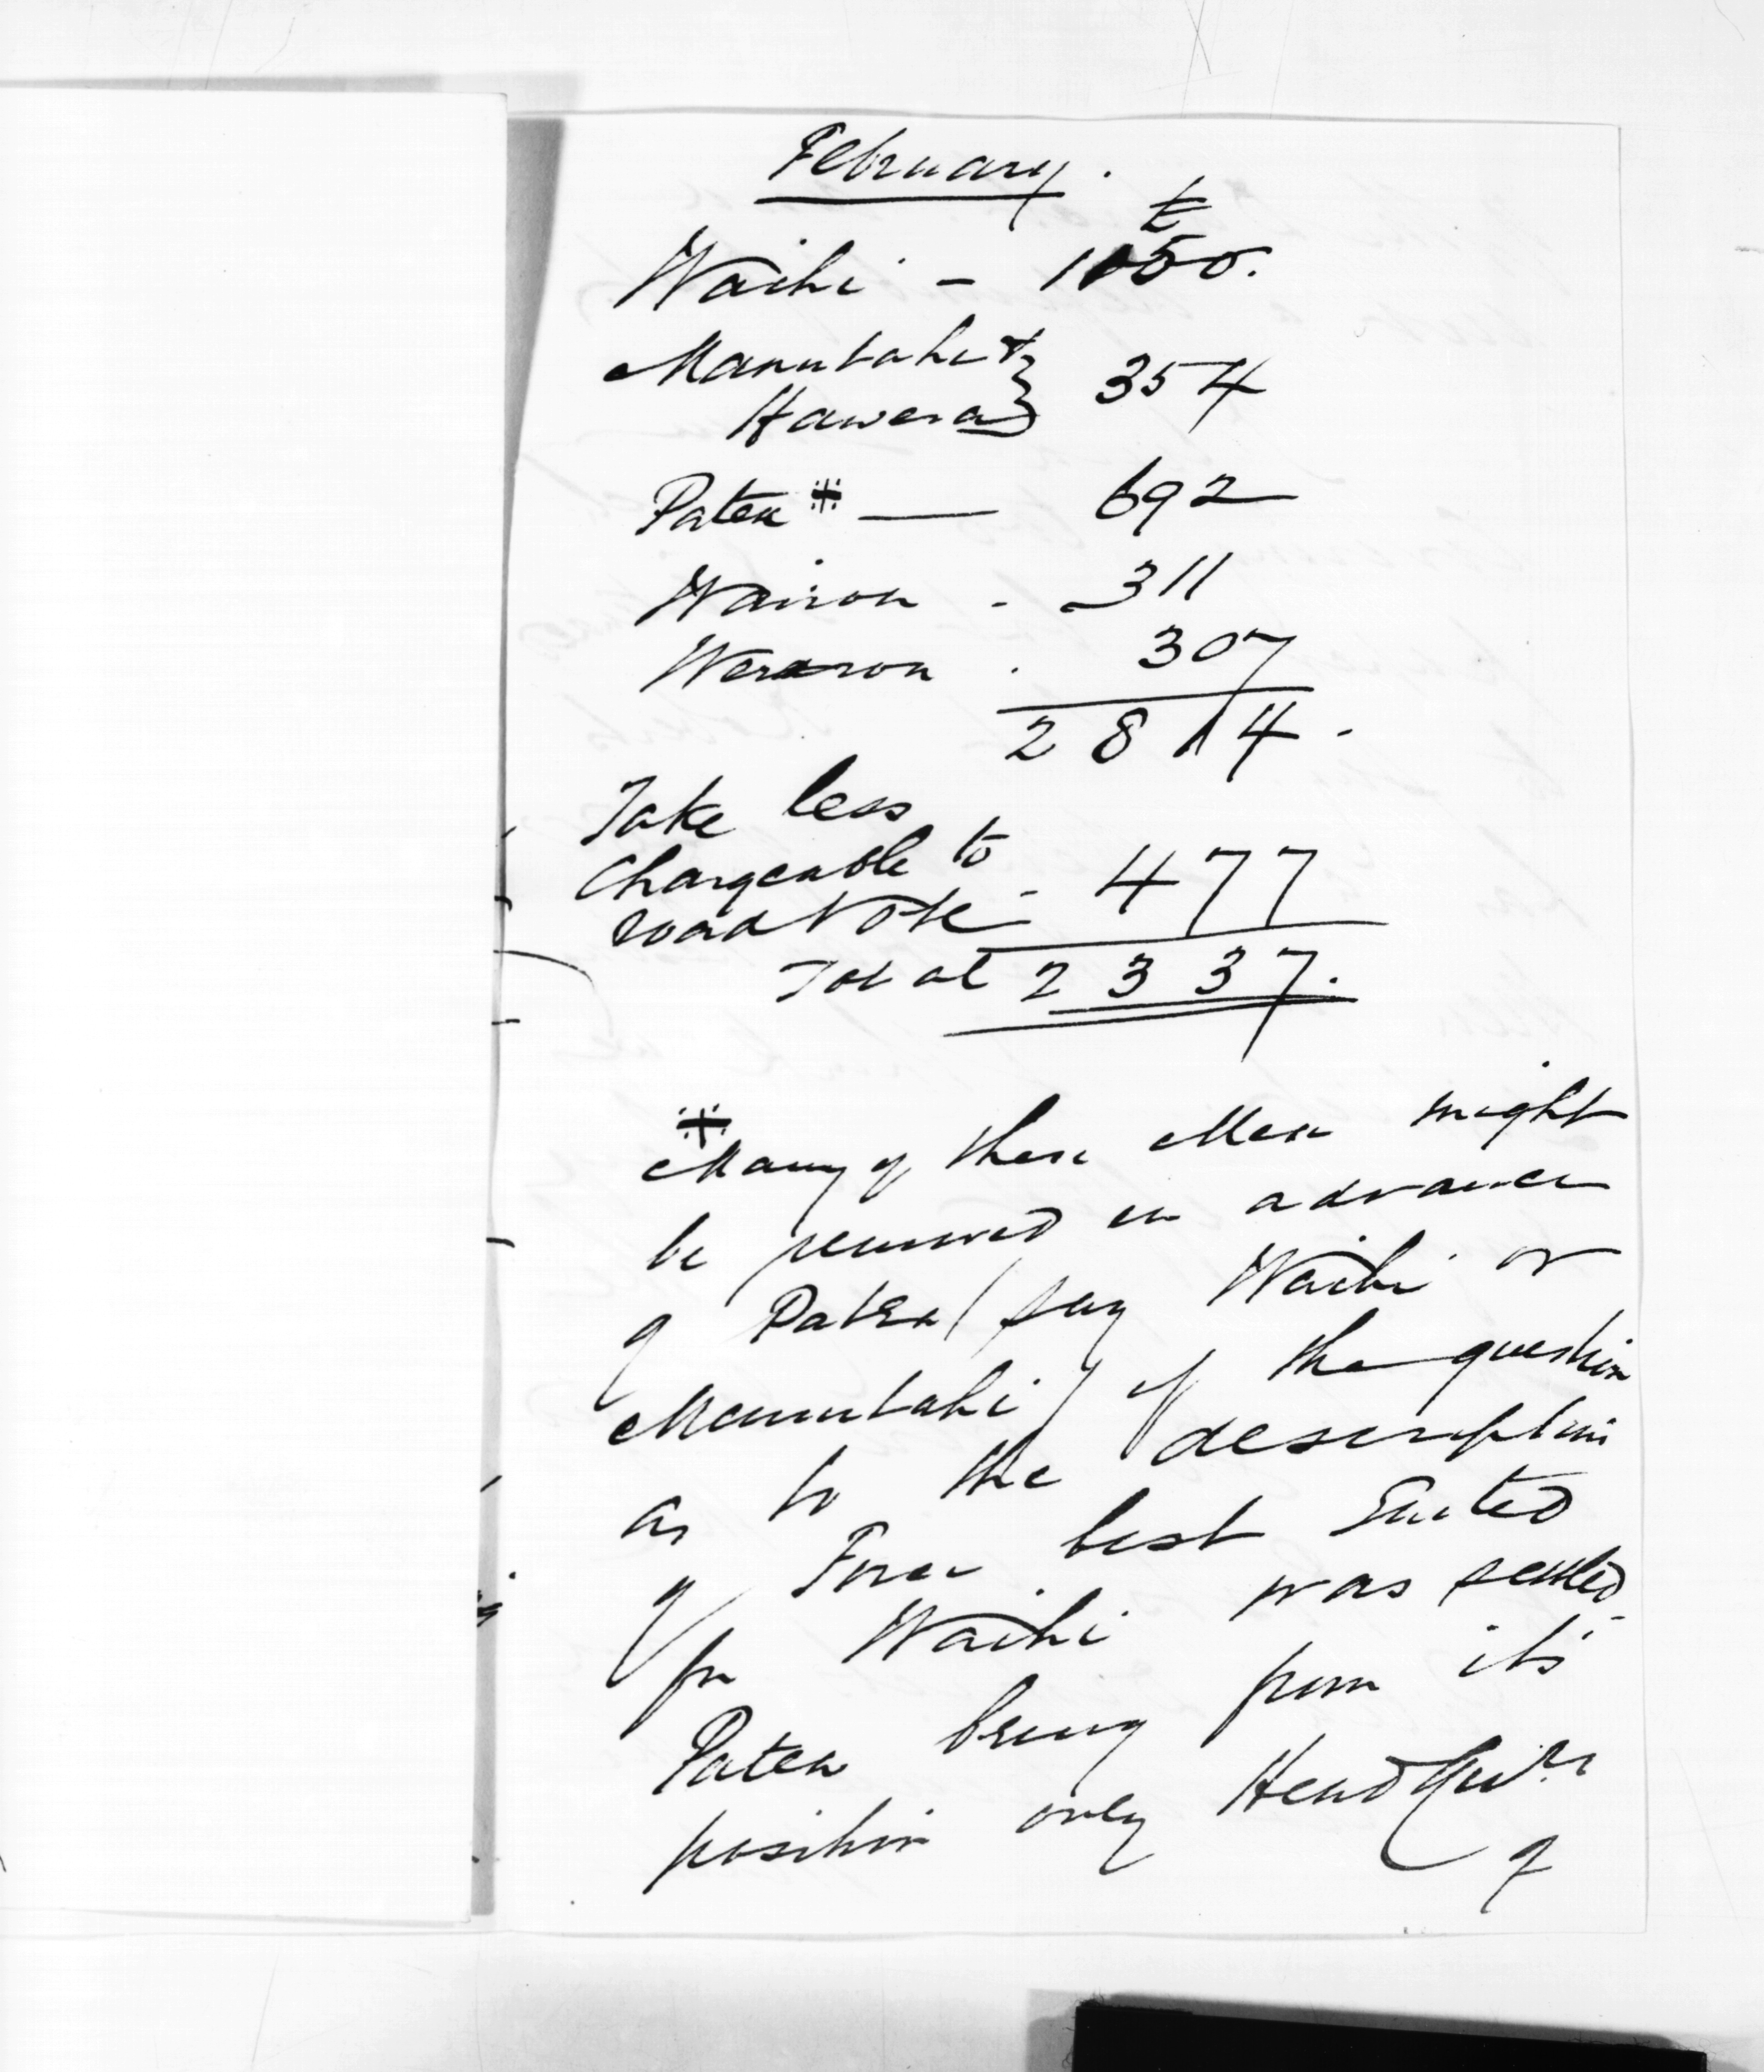 February.
£
Waihi - 1150.
Manutahi &
Hawera } 354
Patea * — 692
Wairoa - 311
Weraroa . 307
2814.
Take less
Chargeable to
road Vote - 477
Total 2337.
*
Many of these Men might
be removed in advance
of Patea (say Waihi or
Manutahi) if the question
as to the description
of Force best Suited
for Waihi was settled.
Patea being from its
position only Head Qrs
of